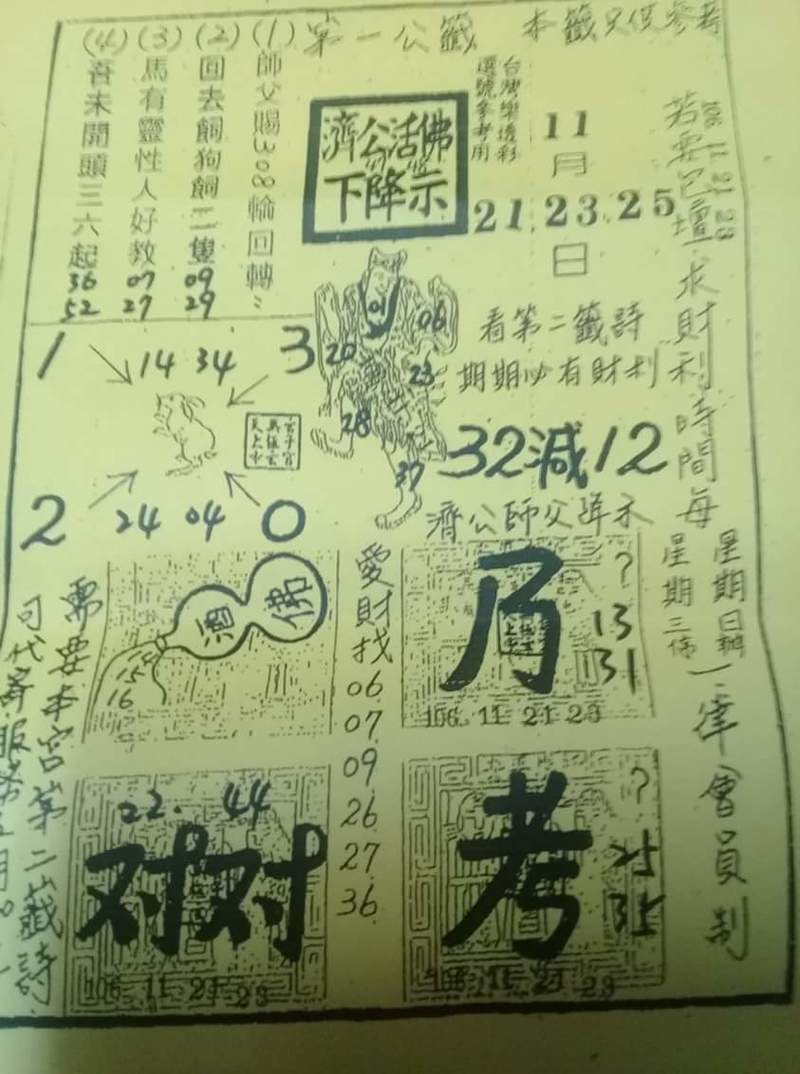 第一公籤 本籤只供參考
(1) 師父賜308輪回轉
(2) 回去飼狗飼二隻 09 29
(3) 馬有靈性人好教 07 27
(4) 吾未開頭三六起 36 52
濟公活佛
下降示
台灣樂透彩
選號參考用
11
月
21 23 25
日
106 11 21 23
求財利時間每
星期日辦
星期三
一律會員制
看第二籤詩
期期必有財利
32減12
濟公師父降示
01
06
20
23
28
37
1
14 34
3
2
24 04
0
酒
佛
15
16
愛財找
06
07
09
26
27
36
乃
?
13
31
106.11.21 23
22. 44
对对
106.11.21 23
考
?
25
35
106.11.21 23
需要本宮第二籤詩